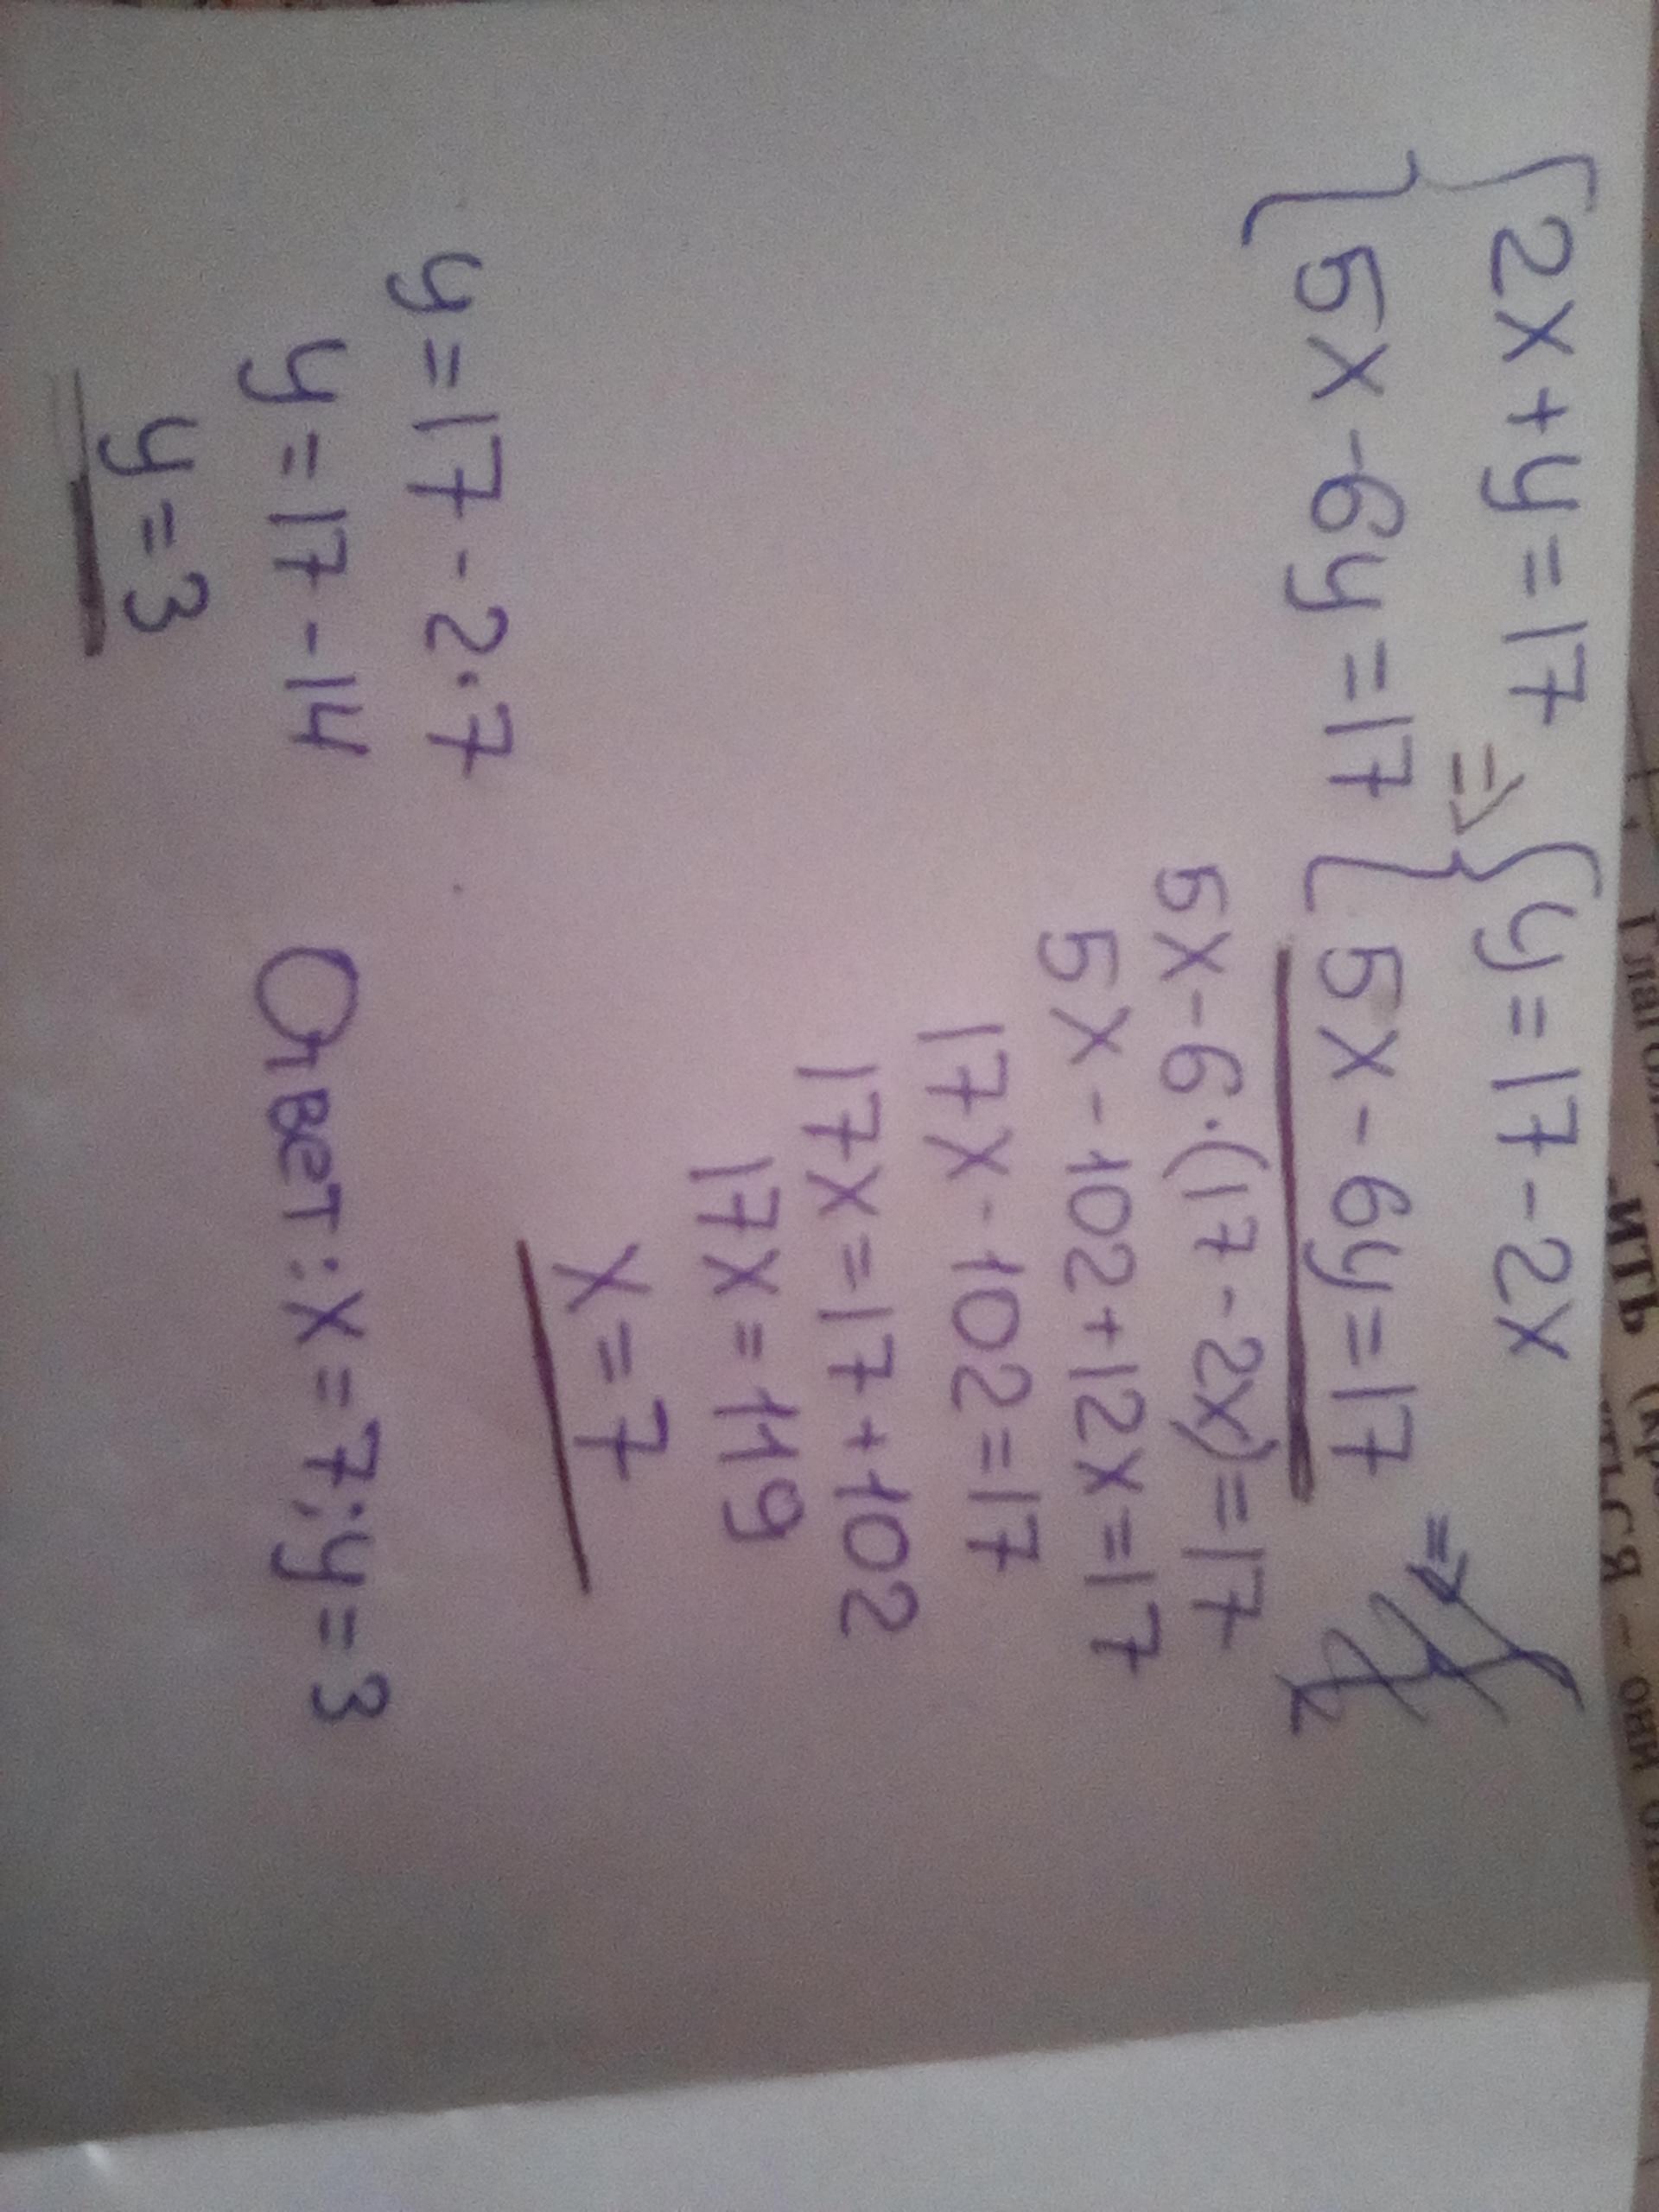 {2x+y=17 => {y=17-2x =>
{5x-6y=17 {5x-6y=17
5x-6·(17-2x)=17
5x-102+12x=17
17x-102=17
17x=17+102
17x=119
x=7
y=17-2·7
y=17-14
y=3
Ответ: x=7; y=3
-ить